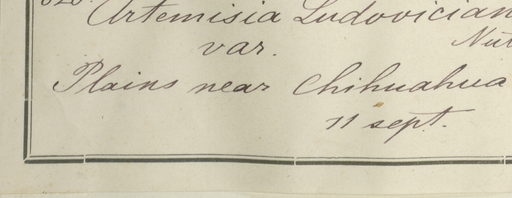 Artemisia Ludovician
Nut
var.
Plains near Chihuahua
11 sept.